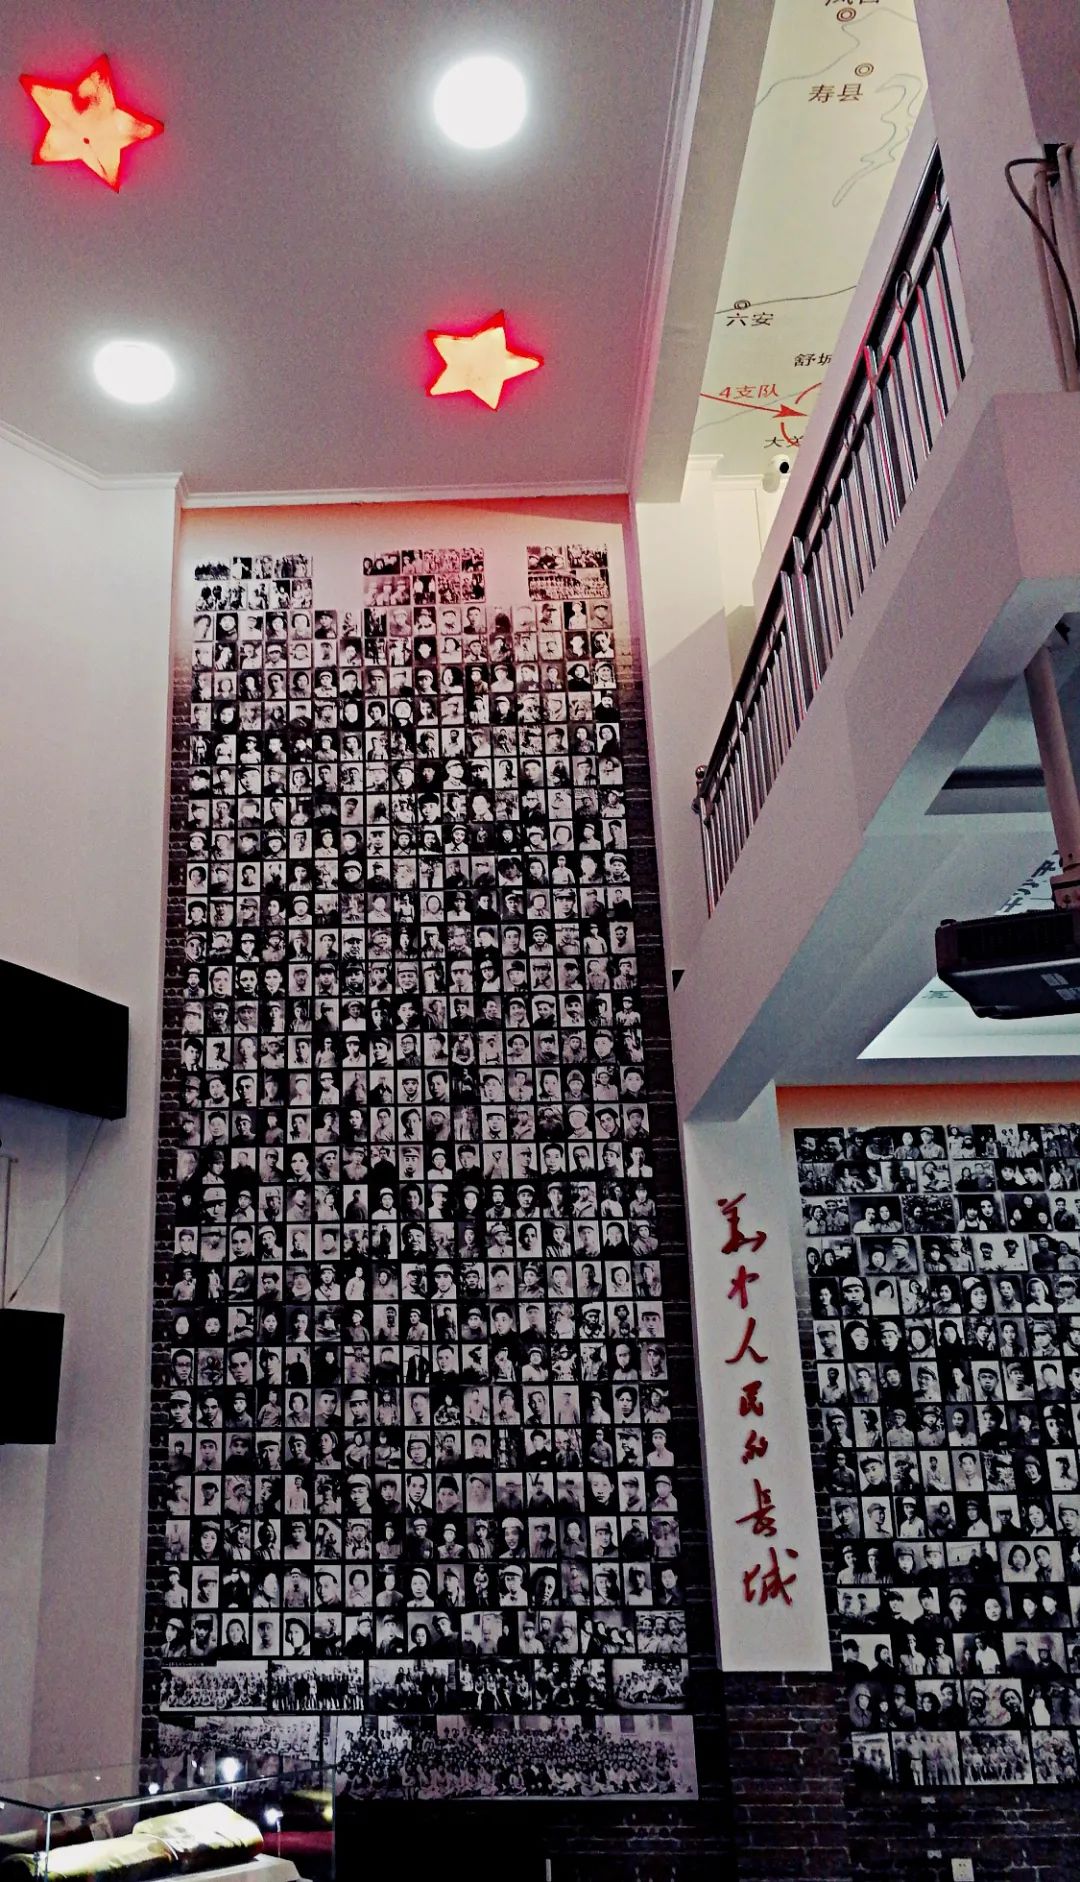 寿县
六安
舒城
4支队
华中人民的長城